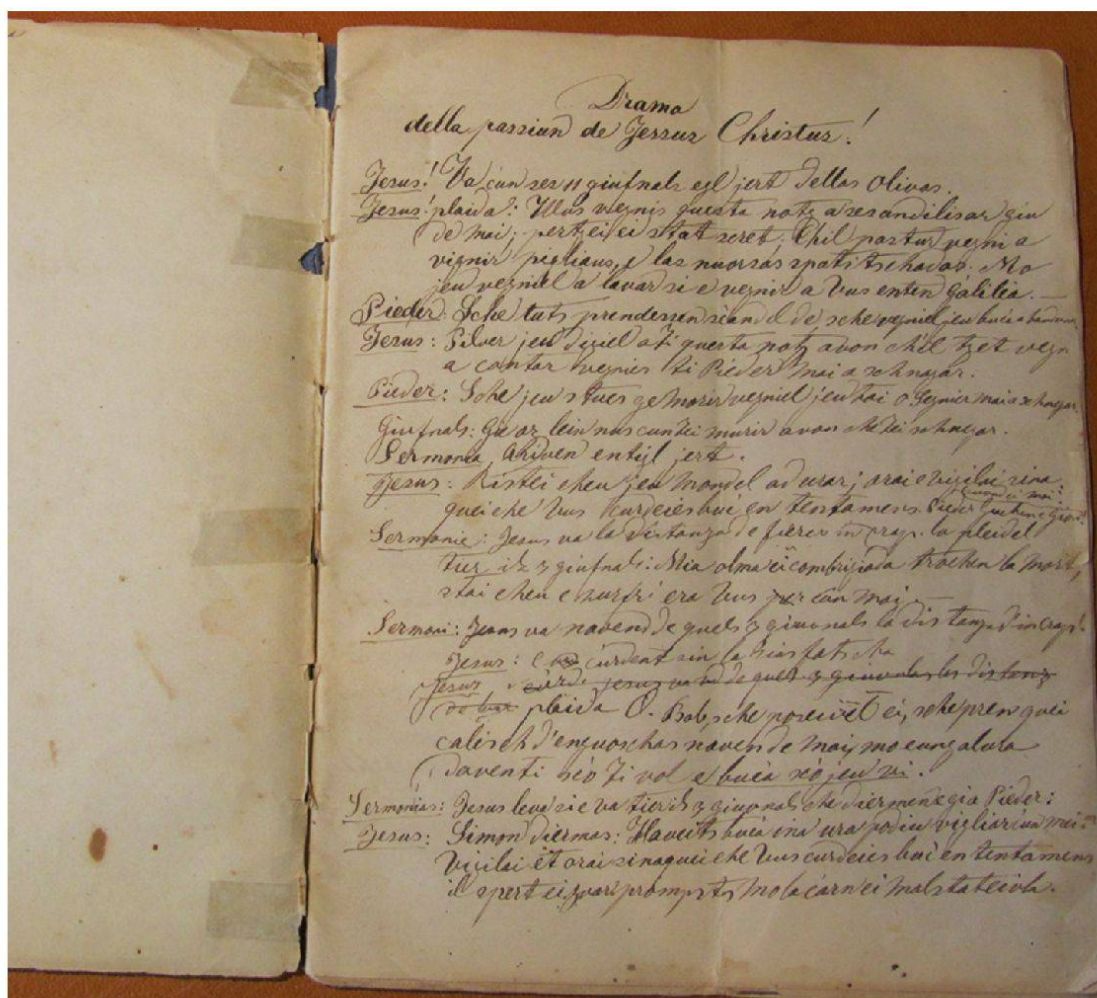 Drama
della passiun de Jessus Christus!
Jesus! Va cun ses 11 giufnals egl jert dellas Olivas.
Jesus! plaida: Vus vegnis questa notg a scandilisar giu
de mai; pertgei ei stat scret: Chil pastur vegni a
vignir pigliaus, e las nuorsas spatitschadas. Mo
jeu vegniel a lavar si e vegnir a Vus enten Galilea. —
Pieder: Sche tuts prendessen scandel de, sche vegniel jeu buca
Jesus: Pilver jeu digiel a Ti questa notg avon ch'il tget vegn
a cantar vegnies ti Pieder mai a schnagar.
Pieder: Sche jeu stues ge morir vegniel jeu tai o Segnier mai a schnagar.
Giufnals: Gie or lein nus cun tei murir avon che tei schnagar.
Sermonia, Ariven entigl jert.
Jesus: Ristei cheu jeu mondel ad urar, orai e vigilai sina
quei che Vus curdeies buc en tentamens. Pieder
Sermonie: Jesus va la distanza de fierer in crap. la pleidel
tier ils 3 giufnals: Mia olma ei combrigiada trochen la mort,
stai cheu e surfri era Vus per cun mai. —
Sermoni: Jesus va navend de quels 3 giuvnals la distanza d'in crap.
Jesus: e curdent sin la sias fatscha
Jesus, curda jesus va vid de quels 3 giuvnals la distanz
plaida O. Bab, sche poseivel ei, sche pren quei
calisch d'enguoschas navend de mai, mo cungalura
daventi sco Ti vol e buca sco jeu vi.
Sermonias: Jesus leva si e va tier ils 3 giuvnals che diermen e gia Pieder:
Jesus: Simon diermas: Haveits buca ina ura podiu vigliar cun mei
Vigilai et orai sinaquei che Vus curdeies buc en tentamens
il spert ei zvar prompts mo la carn ei mal stateivla.